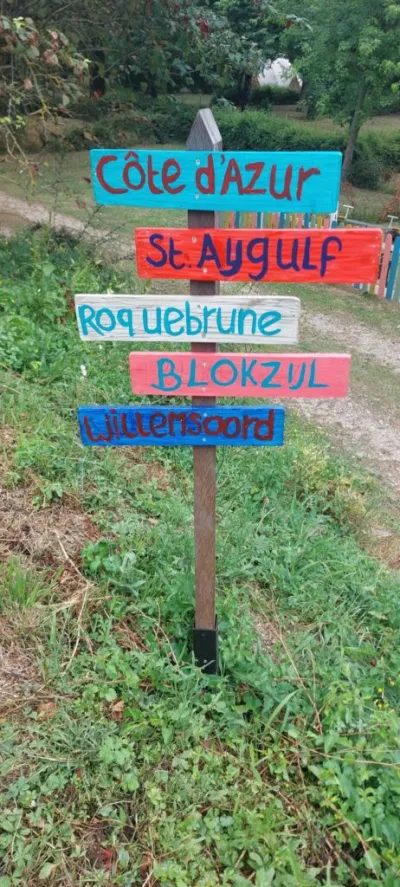 Côte d'Azur
St. Aygulf
Roquebrune
BLOKZIJL
Willemsoord